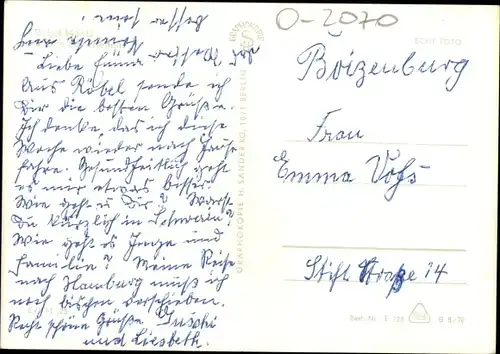 O-2070
ECHT FOTO
Liebe Emma!
Aus Röbel sende ich
Dir die besten Grüße.
Ich denke, das ich diese
Woche wieder nach Hause
fahre. Gesundheitlich geht
es mir etwas besser.
Wie geht es Dir? Warst
Du kürzlich in Schwerin?
Wie geht es Inge und
Familie? Meine Reise
nach Hamburg muß ich
noch bischen verschieben.
Recht schöne Grüße
und Liesbeth.
GRAPHOKOPIE H. SANDER KG, 1071 BERLIN
Boizenburg
Frau
Emma Vohs
Stift Straße 14
Best.-Nr.